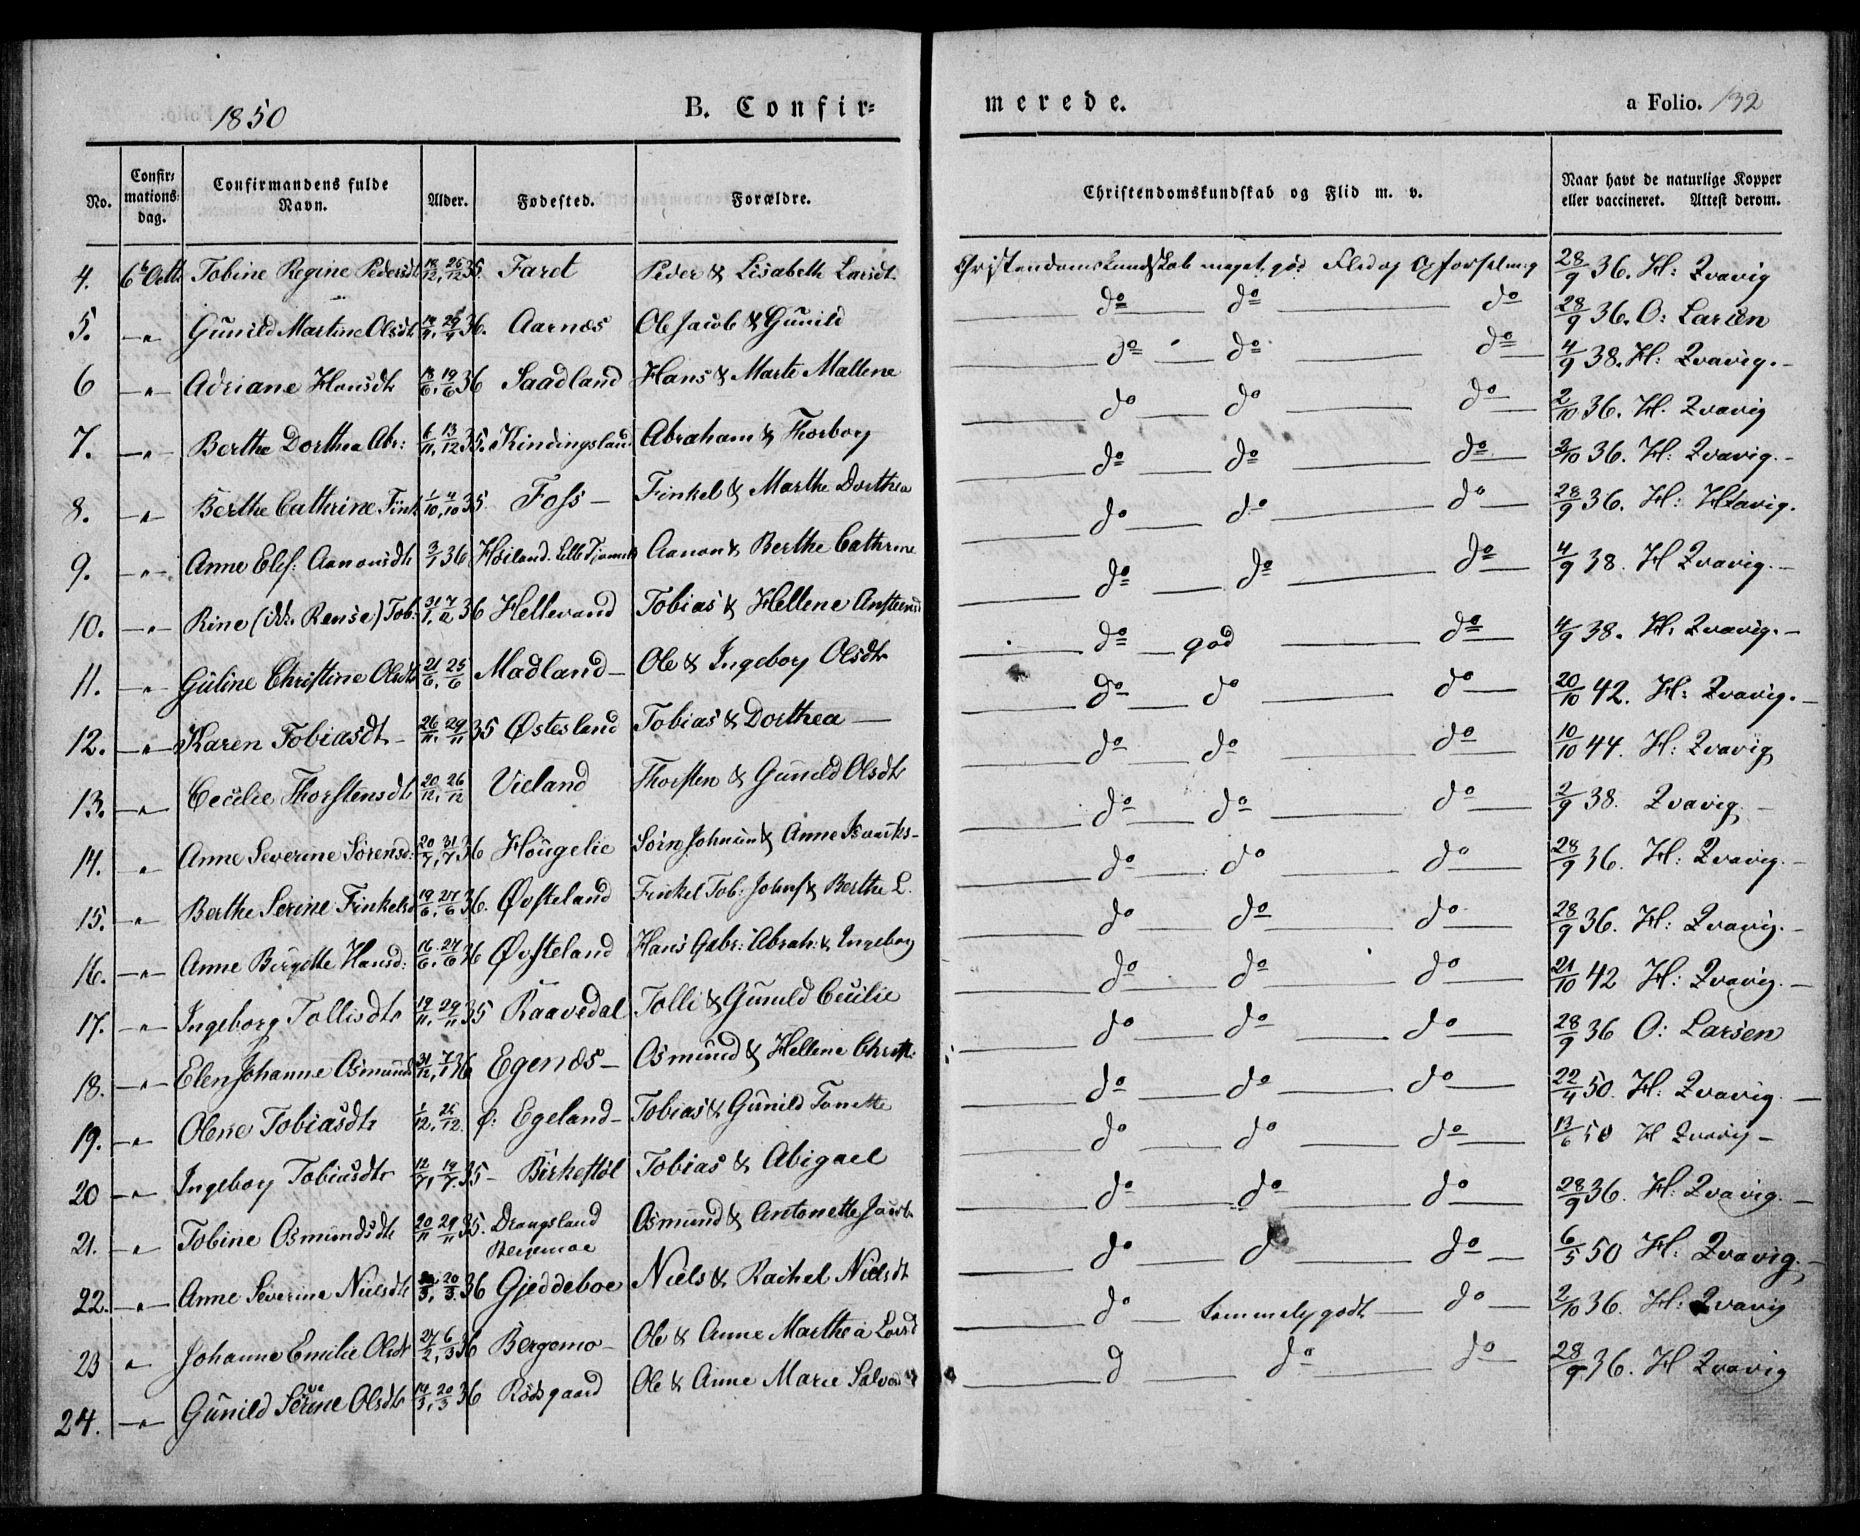 1850 B. Confir= merede. a Folio. 132
No. Confir=mations=dag. Confirmandens fulde Navn. Alder. Fødested. Forældre. Christendomskundskab og Flid m. v. Naar havt de naturlige Kopper eller vaccineret. Attest derom.
4. Tobine Regine Pedersdt 18/12, 26/12 35. Faret Peder & Lisabeth Larsdt. Christendomskundskab meget god Flid og Opførsel 28/9 36. H: Qvavig
5. –„– Gunild Martine Olsdt 36. Aarnæs Ole Jacob & Gunild do do do 28/9 36. O: Larsen
6 –„– Adriane Hansdt 18/6, 19/6 36 Saadland Hans & Marte Mallene do do do 4/9 38. H: Qvavig.–
7. –„– Berthe Dorthea Abr: 6/11, 13/12 35. Kindingsland Abraham & Thorborg do do do 2/10 36. H. Qvavig
8. –„– Berthe Cathrine Fink 1/10, 4/10 35 Foss – Finkel & Marthe Dorthea do do do 2/10 36. H: Qvavig.–
9. –„– Anne Elis: Aanonsdt 3/1 36 Høiland. Aanon & Berthe Cathrine do do do 28/9 36. H:
10. –„– Rine (ikke Rense) Tob: 36 Hellevand Tobias & Hellene do do do 4/9 38. H Qvavig.–
11. –„– Guline Christine Olsdt 21/6, 25/6 Madland – Ole & Ingeborg Olsdt do god do 4/9 38. H. Qvavig.–
12. –„– Karen Tobiasdt – 26/11, 29/11 35 Østesland Tobias & Dorthea – do do do 20/10 42. H: Qvavig.–
13. –„– Cecilie Thorstensdt 20/12, 26/12 Vieland Thorsten & Gunild Olsdt do do do 10/10 44. H: Qvavig
14. „ Anne Severine Sørensd: 20/7, 31/7 36 Hougelie Sørn Johnsen & Anne do do do 2/9 38. Qvavig. –
15. „ Berthe Serine Finkelsd 19/6, 27/6 36. Øvsteland Finkel Tob: Johns & Berthe L. do do do 28/9 36. H: Qvavig.–
16. –„– Anne Birgitte Hansd: 16/6, 27/6 36 Øvsteland Hans Gabr: Abrah: & Ingeborg do do do 28/9 36. H: Qvavig.–
17. –„– Ingeborg Tollisdt 19/11, 29/11 35 Raavedal Tolli & Gunild Cecilie do do do 21/10 42 H: Qvavig. –
18. –„– Elen Johanne Osmunds 31/12, 7/1 36 Egenæs – Osmund & Hellene Christ: do do do 28/9 36 O: Larsen
19. –„– Olene Tobiasdt 1/12, 26/12. Ø: Egeland – Tobias & Gunild Tonette do do do 22/4 50. H: Qvavig. –
20 –„– Ingeborg Tobiasdt 12/7, 19/7. 35 – Birkestøl Tobias & Abigael do do do 13/6 50 H Qvavig –
21. –„– Tobine Osmundsdt 20/11, 29/11 35. Drangsland Bergemoe Osmund & Antonette Jacob. do do do 28/9 36. H: Qvavig. –
22. –„– Anne Severine Nielsdt 20/3. 36 Gjeddeboe Niels & Rachel Nielsdt do do do 6/5 50 H: Qvavig. –
23 „ Johanne Emilie Olsdt 27/2, 6/3 36 Bergemo – Ole & Anne Marthea Larsd do temmelig godt do 2/10 36. H: Qvavig
24. –„– Gunild Serine Olsdt 14/3, 20/3 36 Rødsgaard Ole & Anne Marie d do do 28/9 36. H Qvavig